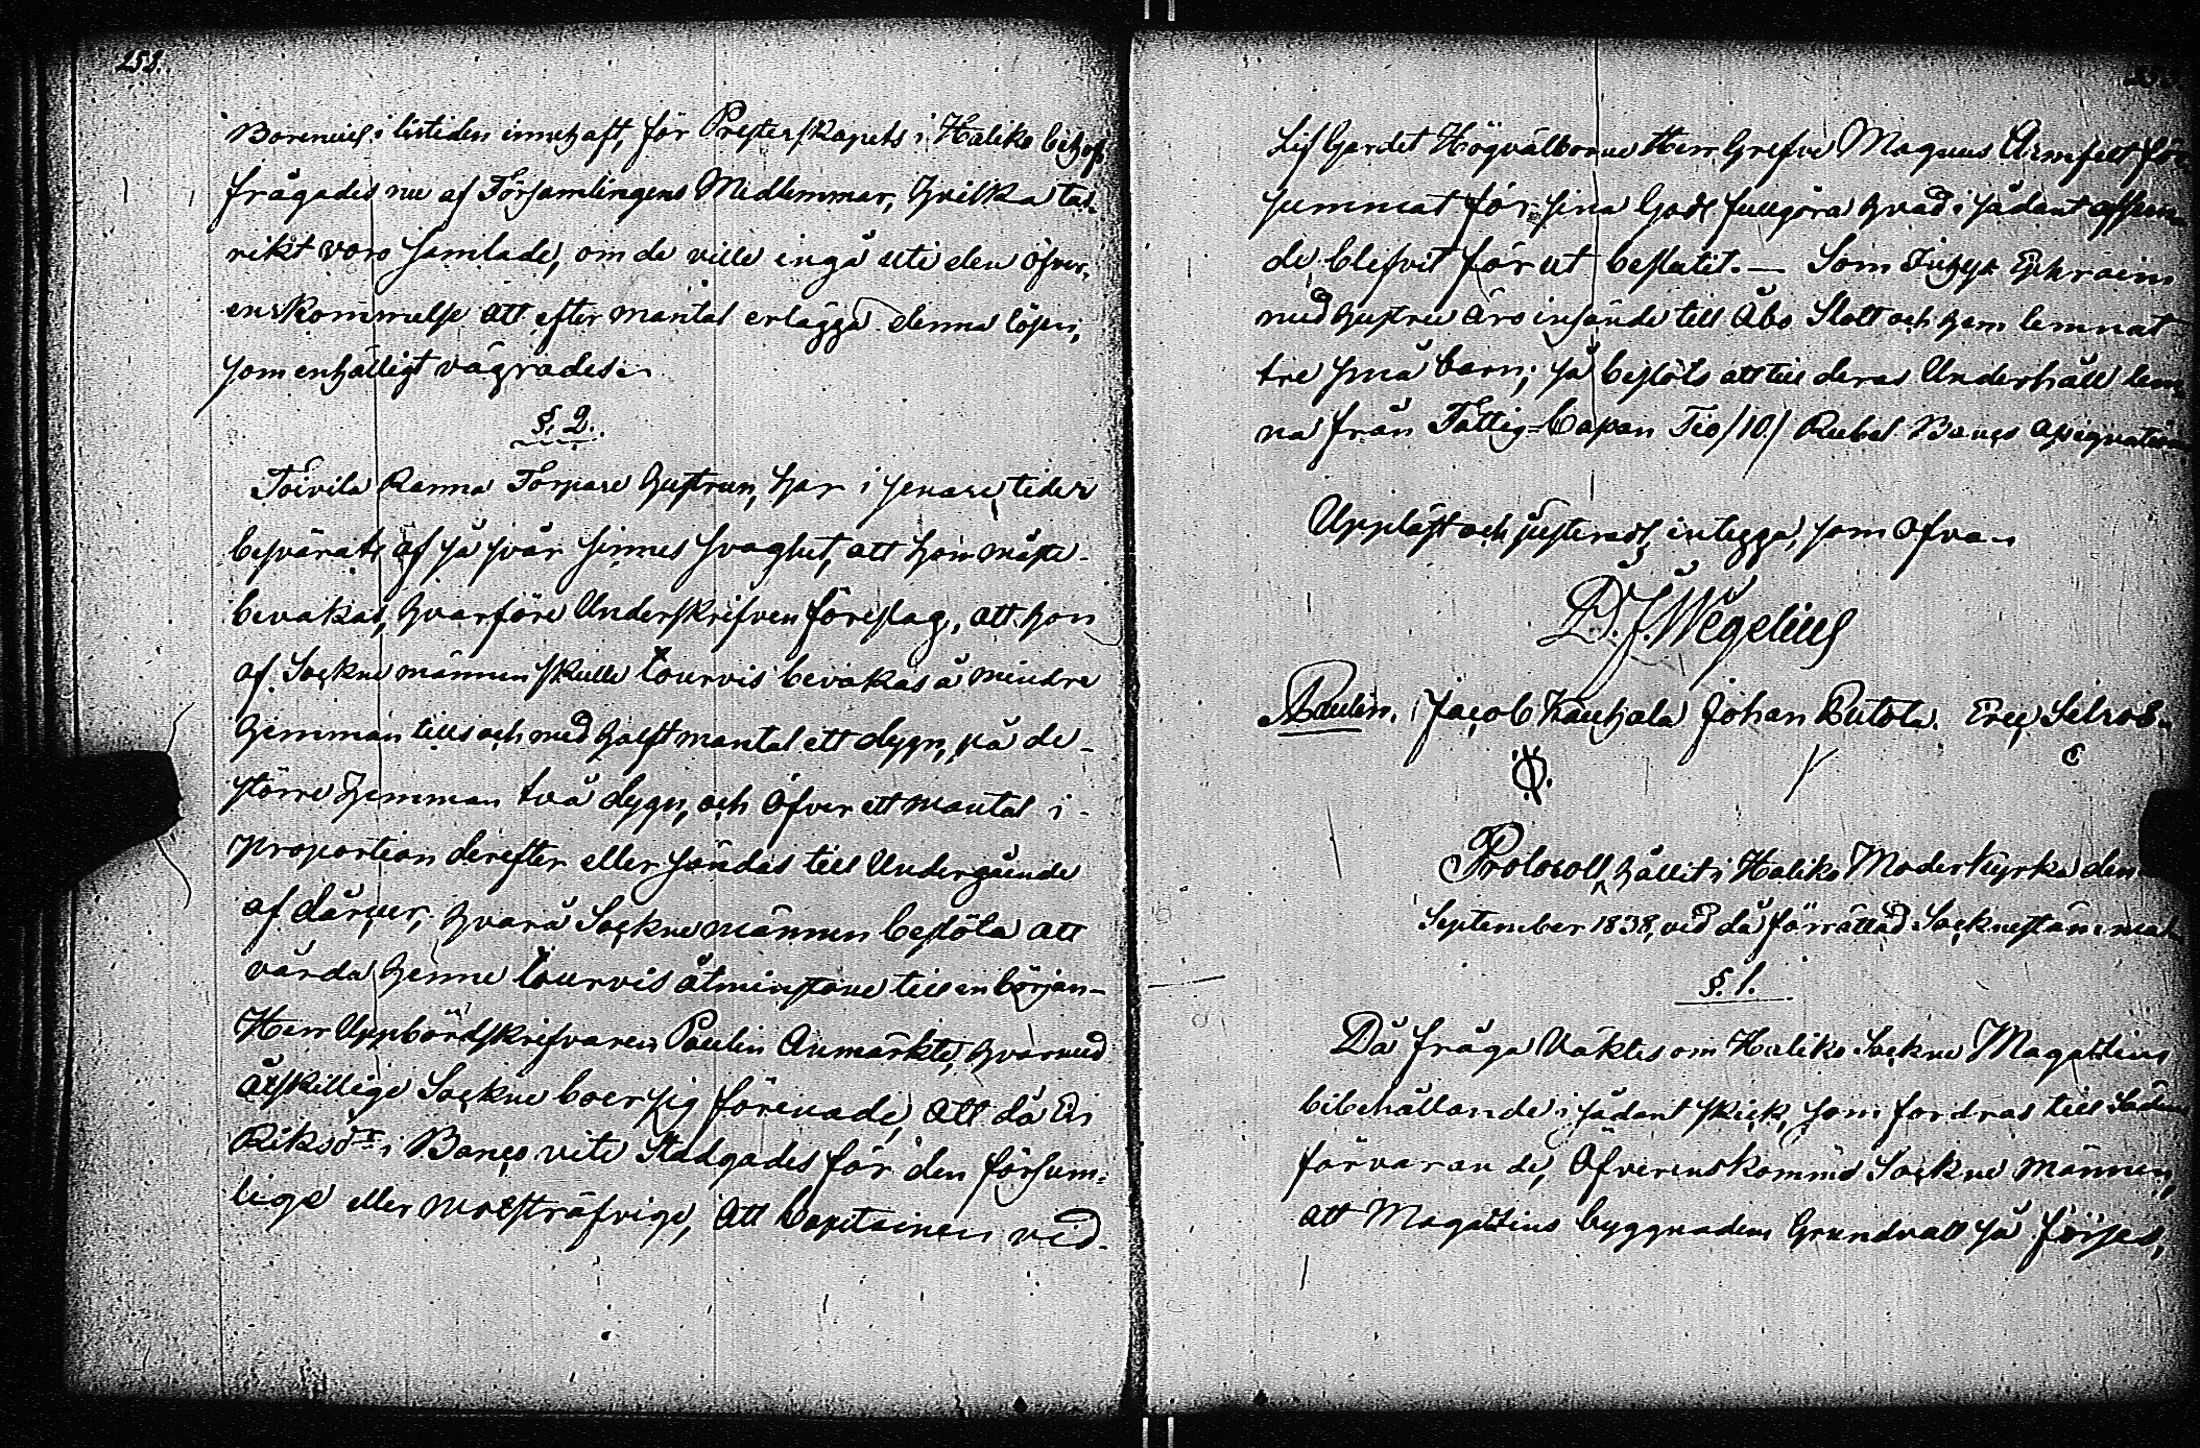 252.
Borenius i listiden innehaft, för Presterskapets i Haliko behof,
frågades nu af Församlingens Medlemmar, hvilka tal-
rikt voro samlade, om de ville ingå uti den öfver-
enskommelse att efter mantal erlägga denna lösen,
som enhälligt vägrades.
§. 2.
Toivila Ranna Torpare hustrun, har i senare tider
besvärats af så svår sinnes svaghet, att hon måste
bevakas, hvarföre Underskrifven föreslag, att hon
af Sockne männen skulle tourvis bevakas å mindre
hemman till och med halft mantal ett dygn, på de
större hemman två dygn, och öfver ett mantal i
proportion derefter eller sändas till Undergående
af dårcur, hvarå Sockne männen beslöto att
vårda henne tourvis åtminstone till en början
Herr Uppbördsskrifvaren Paulin Anmärkte, hvarmed
åtskillige Sockne boer sig förenade, att då En
Riksdr i Banco vite Stadgades för den försum-
lige eller motsträfvige, att Capitainen vid
Lif Gardet Högvälborne Herr Grefve Magnus Armfelt för
summat för sina Gods fullgöra hvad i sådant afseen
de blifvit förut beslutit. — Som Inhys Ephraim
med hustru äro insände till Åbo Slott och hem lemnat
tre små barn; så beslöts att till deras Underhåll lem
na från Fattig-Cassan Tio /10/ Rubel Banco Assignationer
Uppläst och justeradt, intygga, som ofvan
D. J. Wegelius
Paulin. Jacob Kauhala Johan Butola. Eric
Protocoll, hållit i Haliko Moderkyrka den
September 1838, vid då förrättad Socknestämma
§. 1.
Då fråga väktes om Haliko Sockne Magazins
bibehållande i sådant skick, som fordras till Sädens
förvarande, Öfverenskommo Sockne männen,
att Magazins byggnadens Grundvall så förses,